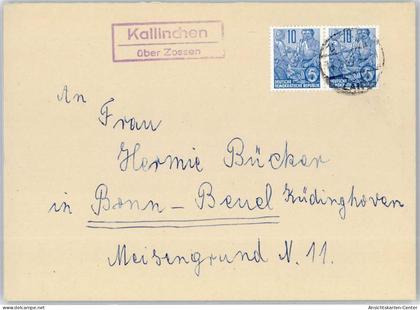 Kallinchen
über Zossen
10 10
DEUTSCHE
DEMOKRATISCHE REPUBLIK
An
Frau
Hermie Bücker
in Bonn - Beuel Küdinghoven
Meisengrund N. 11.
Ansichtskarten-Center